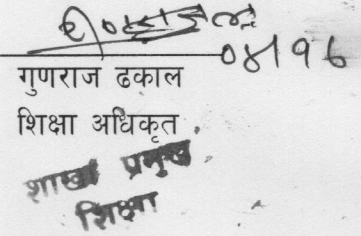 ०४।१६
गुणराज ढकाल
शिक्षा अधिकृत
शाखा प्रमुख
शिक्षा